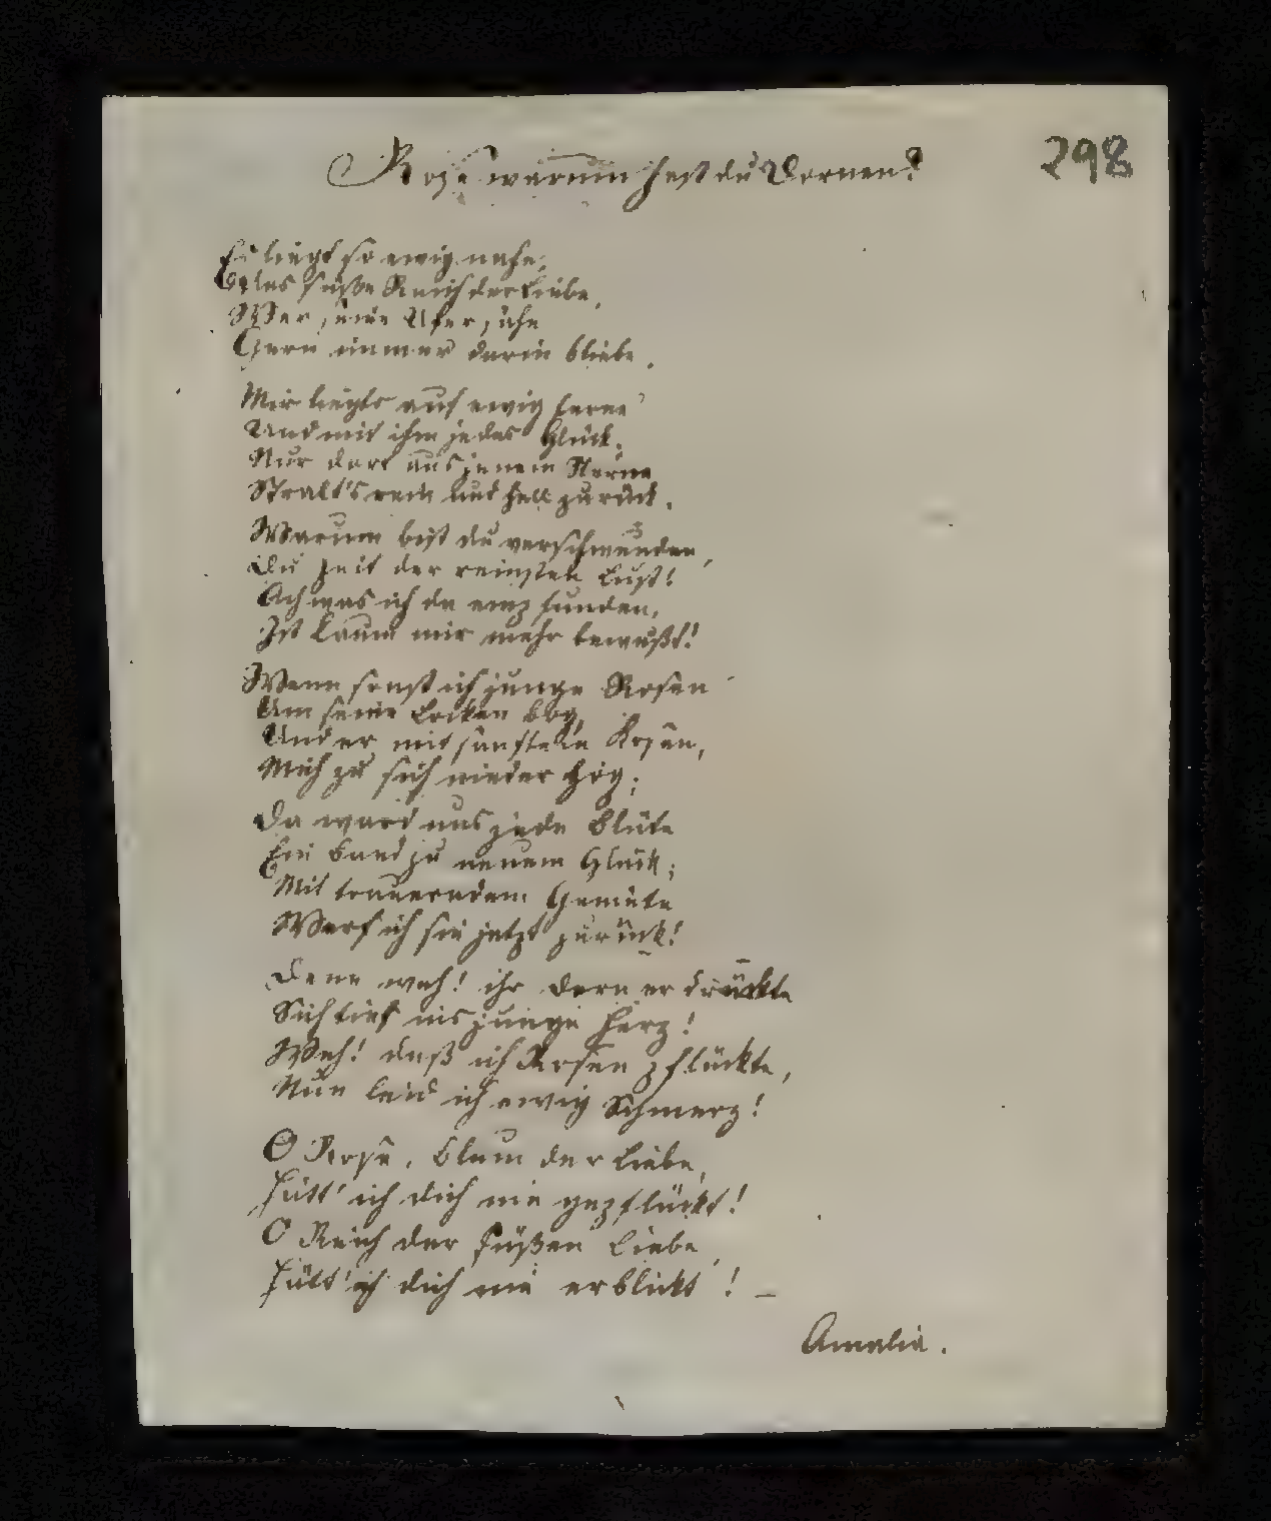 Rose warum hast du Dornen?
298
Es liegt so ewig nahe,
Das süße Reich der Liebe,
Wer seine Ufer sähe
Gern immer darin bliebe.
Mir liegts auf ewig ferne
Und mit ihm jedes Glück,
Nur dort aus jenem Sterne
Stralt's rein und hell zurück.
Warum bist du verschwunden,
Du Zeit der reinsten Lust!
Ach was ich da empfunden,
Ist kaum mir mehr bewußt!
Wenn sonst ich junge Rosen
Um seine Locken bog,
Und er mit sanftem Kosen,
Mich zu sich nieder zog;
Da ward uns jede Blüte
Ein Band zu neuem Glück;
Mit trauerndem Gemüte
Werf ich sie jetzt zurück!
Denn weh! ihr Dorn er drückte
Sich tief ins junge Herz!
Weh! daß ich Rosen pflückte,
Nun leid ich ewig Schmerz!
O Rose, Blum der Liebe,
Hätt' ich dich nie gepflückt!
O Reich der süßen Liebe,
Hätt' ich dich nie erblickt! –
Amalia.